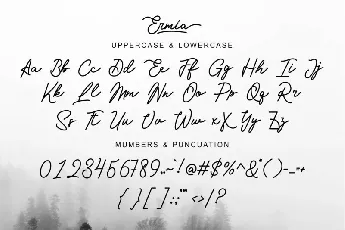 Ermia
UPPERCASE & LOWERCASE
Aa Bb Cc Dd Ee Ff Gg Hh Ii Jj
Kk Ll Mm Nn Oo Pp Qq Rr
Ss Tt Uu Vv Ww xX Yy Zz
MUMBERS & PUNCUATION
0123456789.,~`!@#$%^&*()-_=+
{}[]:;'"<>/|?